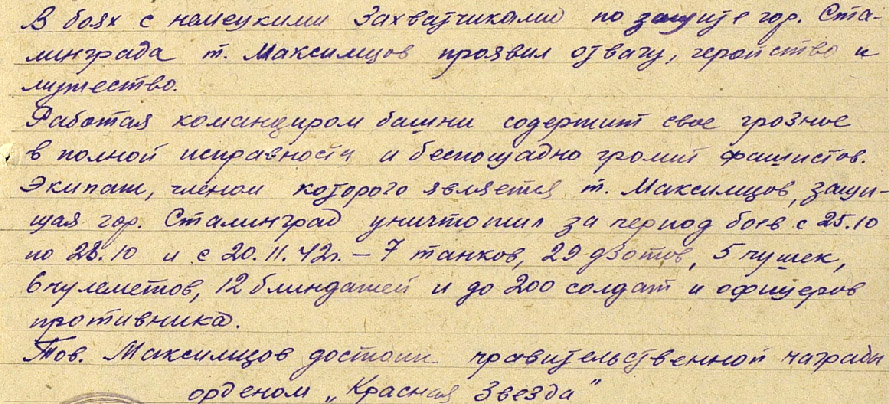 В боях с немецкими захватчиками по защите гор. Ста-
линграда т. Максимцов проявил отвагу, геройство и
мужество.
Работая командиром башни содержит свое грозное
в полной исправности и беспощадно громит фашистов.
Экипаж, членом которого является т. Максимцов, защи-
щая гор. Сталинград уничтожил за период боев с 25.10
по 28.10 и с 20.11.42г. – 7 танков, 29 дзотов, 5 пушек,
6 пулеметов, 12 блиндажей и до 200 солдат и офицеров
противника.
Тов. Максимцов достоин правительственной награды
орденом „Красная Звезда"